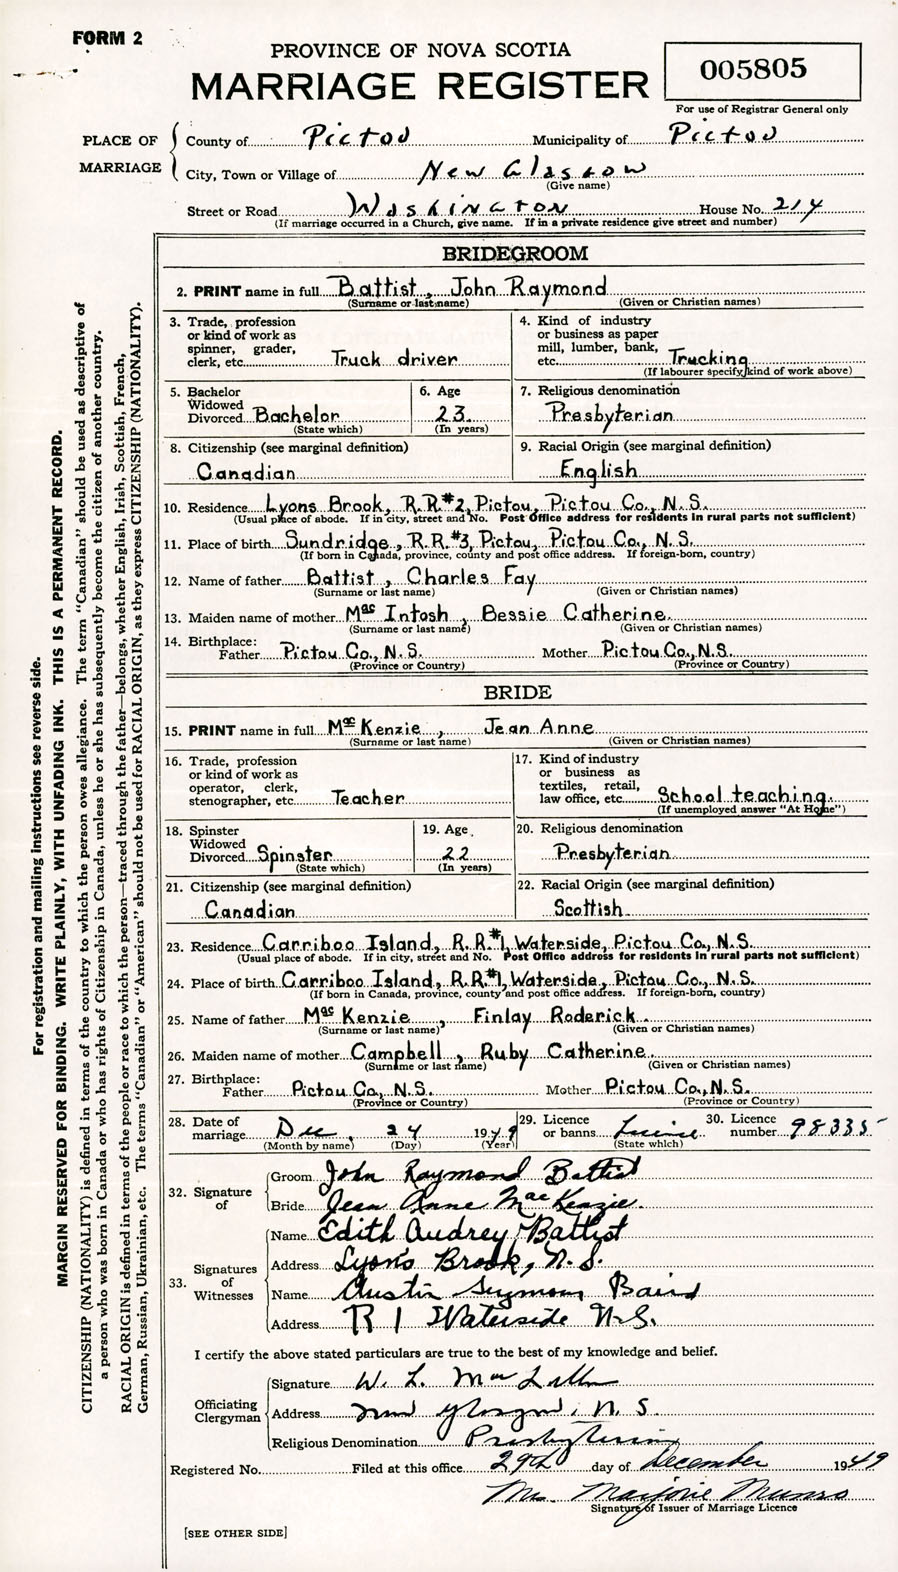 FORM 2
PROVINCE OF NOVA SCOTIA
MARRIAGE REGISTER
005805
For use of Registrar General only
PLACE OF MARRIAGE
County of Pictou Municipality of Pictou
City, Town or Village of New Glasgow
(Give name)
Street or Road Washington House No. 214
(If marriage occurred in a Church, give name. If in a private residence give street and number)
BRIDEGROOM
2. PRINT name in full Battist, John Raymond
(Surname or last name) (Given or Christian names)
3. Trade, profession or kind of work as spinner, grader, clerk, etc. Truck driver
4. Kind of industry or business as paper mill, lumber, bank, etc. Trucking
(If labourer specify kind of work above)
5. Bachelor Widowed Divorced Bachelor
(State which)
6. Age 23
(In years)
7. Religious denomination Presbyterian
8. Citizenship (see marginal definition)
Canadian
9. Racial Origin (see marginal definition)
English
10. Residence Lyons Brook, R.R.#2, Pictou, Pictou Co., N.S.
(Usual place of abode. If in city, street and No. Post Office address for residents in rural parts not sufficient)
11. Place of birth Sundridge, R.R.#3, Pictou, Pictou Co., N.S.
(If born in Canada, province, county and post office address. If foreign-born, country)
12. Name of father Battist, Charles Fay
(Surname or last name) (Given or Christian names)
13. Maiden name of mother MacIntosh, Bessie Catherine.
(Surname or last name) (Given or Christian names)
14. Birthplace: Father Pictou Co., N.S. Mother Pictou Co., N.S.
(Province or Country) (Province or Country)
BRIDE
15. PRINT name in full MacKenzie, Jean Anne
(Surname or last name) (Given or Christian names)
16. Trade, profession or kind of work as operator, clerk, stenographer, etc. Teacher
17. Kind of industry or business as textiles, retail, law office, etc. School teaching.
(If unemployed answer "At Home")
18. Spinster Widowed Divorced Spinster
(State which)
19. Age 22
(In years)
20. Religious denomination
Presbyterian
21. Citizenship (see marginal definition)
Canadian
22. Racial Origin (see marginal definition)
Scottish
23. Residence Carriboo Island, R.R.#1, Waterside, Pictou Co., N.S.
(Usual place of abode. If in city, street and No. Post Office address for residents in rural parts not sufficient)
24. Place of birth Carriboo Island, R.R.#1, Waterside, Pictou Co., N.S.
(If born in Canada, province, county and post office address. If foreign-born, country)
25. Name of father MacKenzie, Finlay Roderick.
(Surname or last name) (Given or Christian names)
26. Maiden name of mother Campbell, Ruby Catherine.
(Surname or last name) (Given or Christian names)
27. Birthplace: Father Pictou Co., N.S. Mother Pictou Co., N.S.
(Province or Country) (Province or Country)
28. Date of marriage Dec. 24 1949
(Month by name) (Day) (Year)
29. Licence or banns License
(State which)
30. Licence number 98335
32. Signature of
Groom John Raymond Battist
Bride Jean Anne MacKenzie.
33. Signatures of Witnesses
Name Edith Audrey Battist
Address Lyons Brook, N.S.
Name Austin Seymour Baird
Address R 1 Waterside N.S.
I certify the above stated particulars are true to the best of my knowledge and belief.
Officiating Clergyman
Signature W. L. Mac
Address New Glasgow, N. S.
Religious Denomination Presbyterian
Registered No. Filed at this office 29th day of December 1949
Mrs. Marjorie Munro
Signature of Issuer of Marriage Licence
[SEE OTHER SIDE]
For registration and mailing instructions see reverse side.
MARGIN RESERVED FOR BINDING. WRITE PLAINLY, WITH UNFADING INK. THIS IS A PERMANENT RECORD.
CITIZENSHIP (NATIONALITY) is defined in terms of the country to which the person owes allegiance. The term "Canadian" should be used as descriptive of
a person who was born in Canada or who has rights of Citizenship in Canada, unless he or she has subsequently become the citizen of another country.
RACIAL ORIGIN is defined in terms of the people or race to which the person—traced through the father—belongs, whether English, Irish, Scottish, French,
German, Russian, Ukrainian, etc. The terms "Canadian" or "American" should not be used for RACIAL ORIGIN, as they express CITIZENSHIP (NATIONALITY).